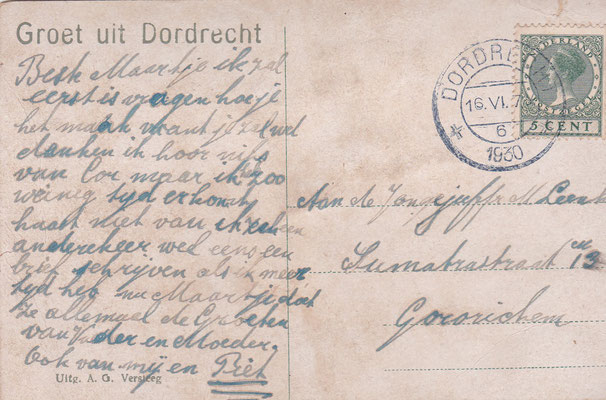 Groet uit Dordrecht
Beste Maartje ik zal
eerst is vragen hoe je
het maak want je zal wel
denken ik hoor niks
van Cor maar ik zoo
weinig tyd er komt
haast niet van ik zal een
andere keer wel eens een
brief schrijven als ik meer
tyd heb nu Maartje dat
ze allemaal de Groeten
van Vader en Moeder.
Ook van mij en Piet
Uitg. A. G. Versteeg
DORDRECHT
16.VI.
6
1930
NEDERLAND
5 CENT
Aan de Jongejuffr M
Sumatrastraat 13
Gororichem